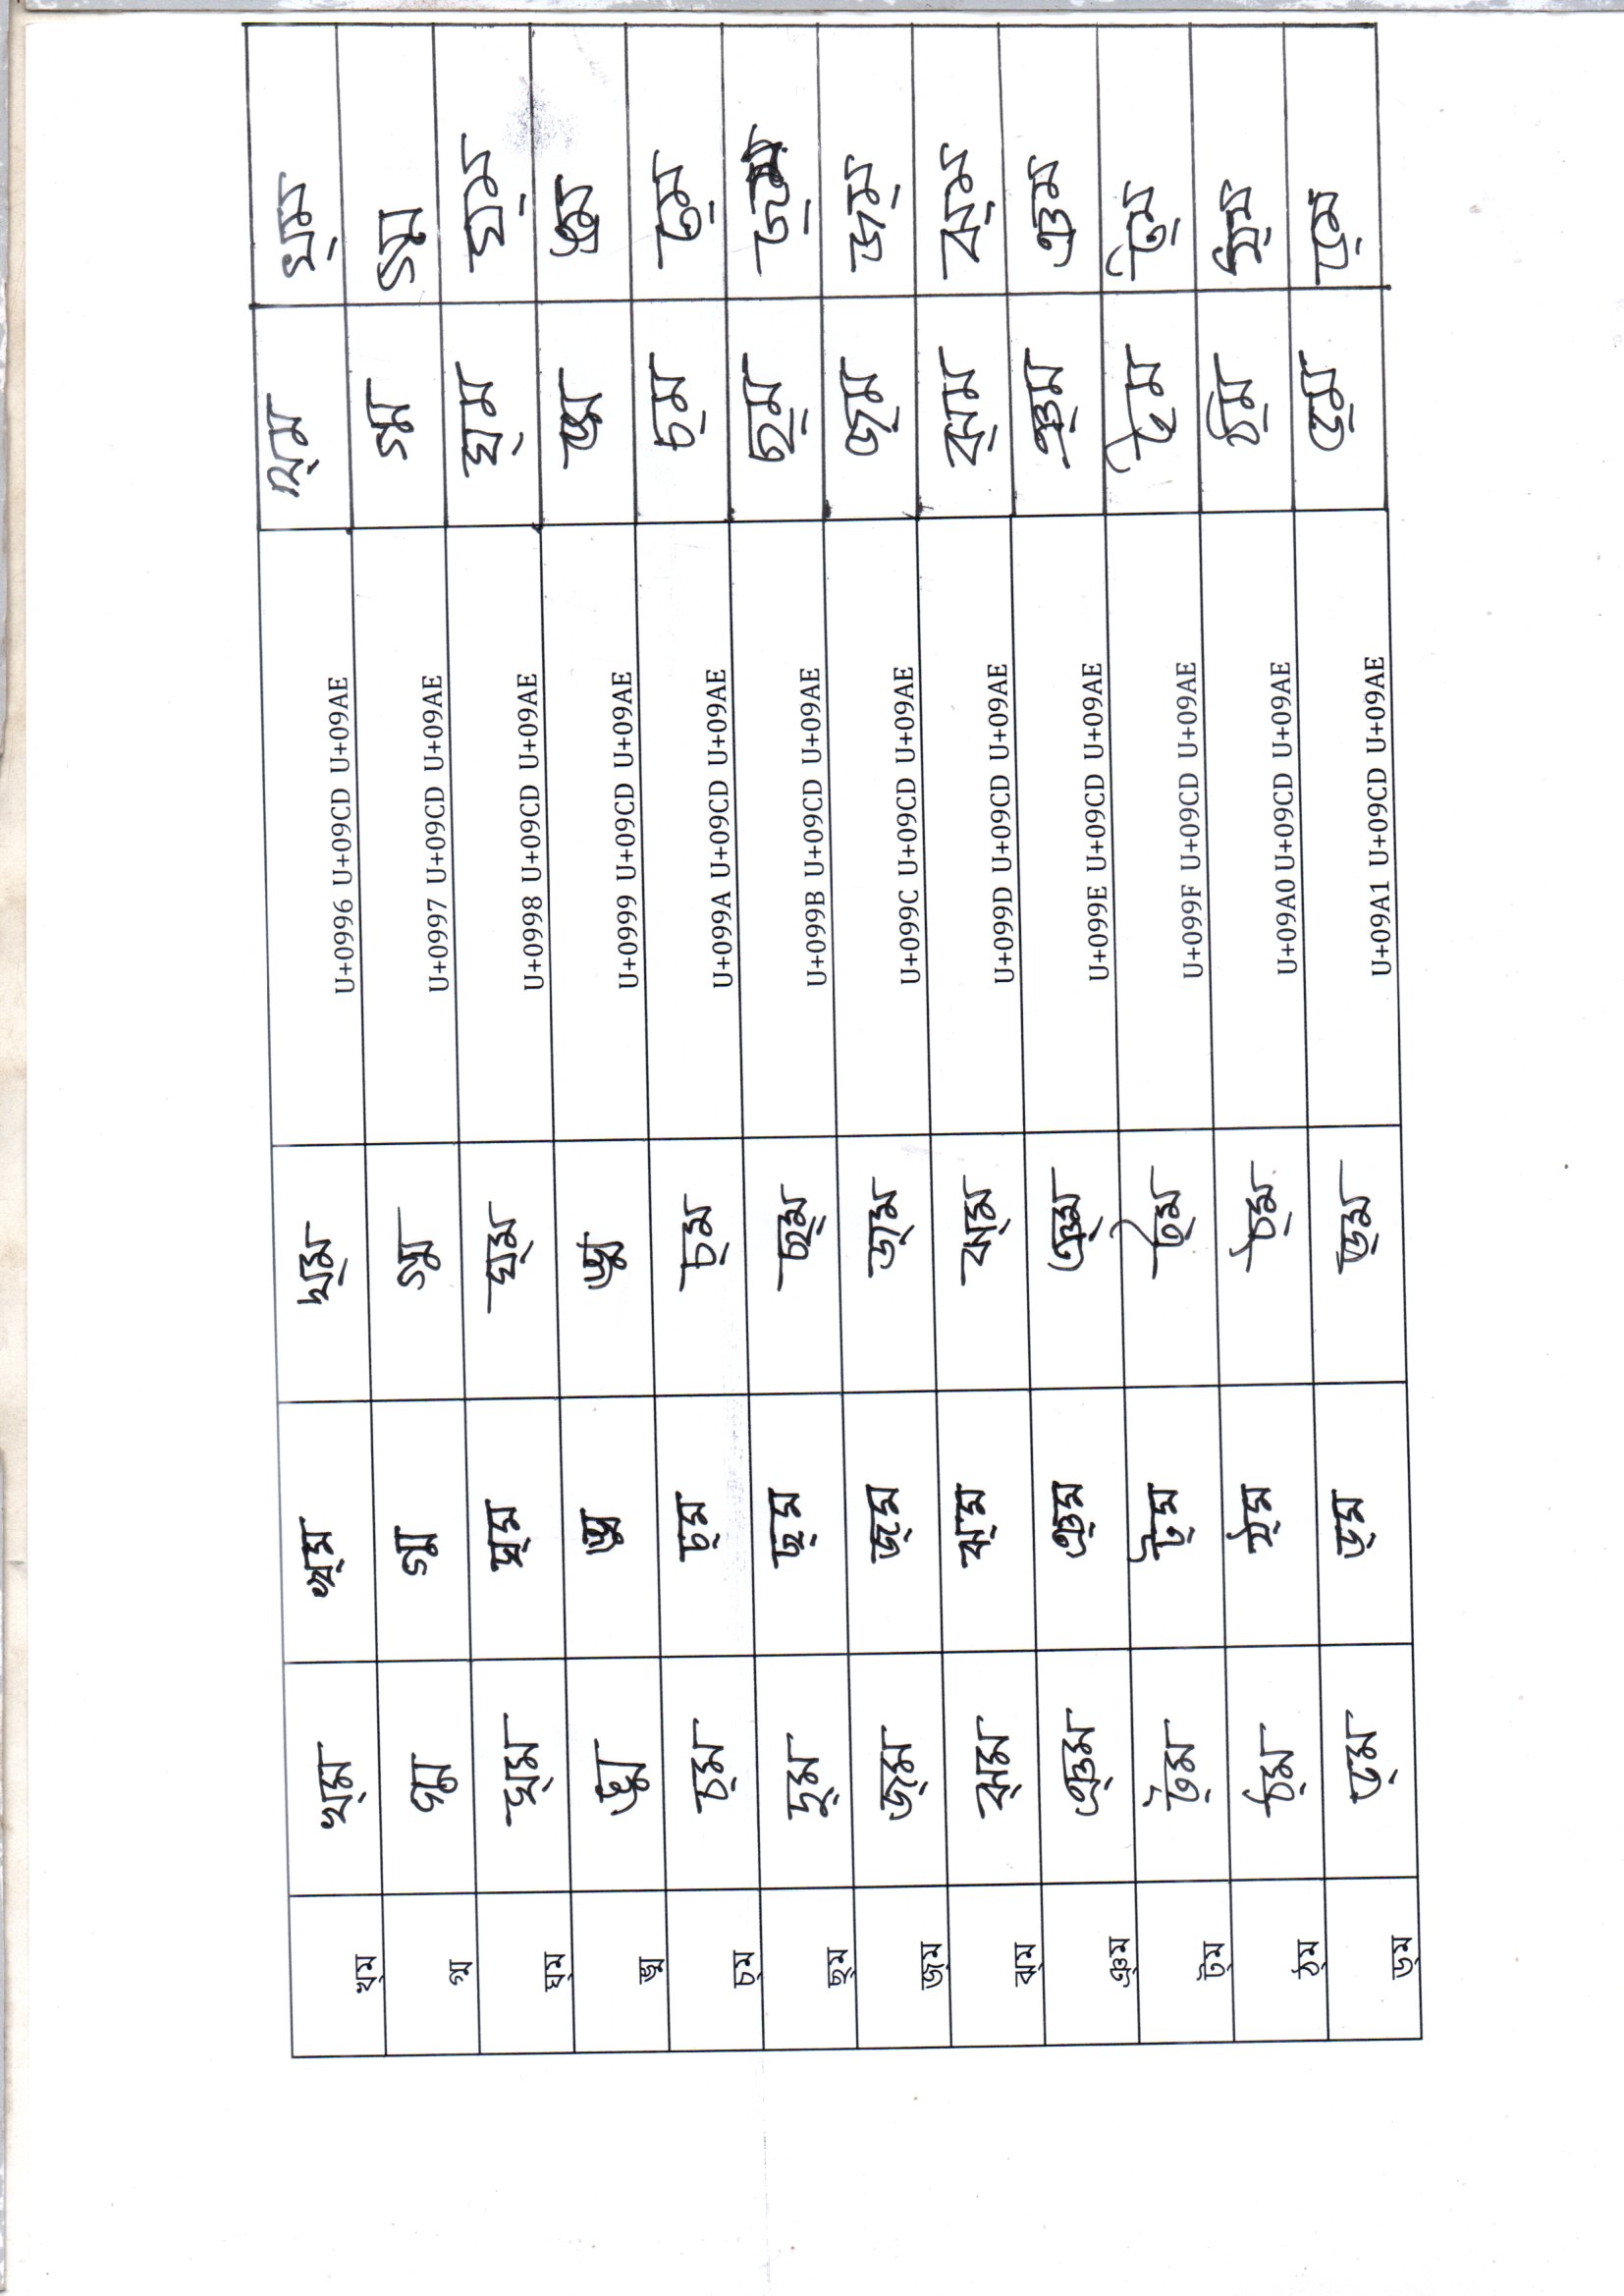 খ্ম খ্ম খ্ম খ্ম U+0996 U+09CD U+09AE খ্ম খ্ম
গ্ম গ্ম গ্ম গ্ম U+0997 U+09CD U+09AE গ্ম গ্ম
ঘ্ম ঘ্ম ঘ্ম ঘ্ম U+0998 U+09CD U+09AE ঘ্ম ঘ্ম
ঙ্ম ঙ্ম ঙ্ম ঙ্ম U+0999 U+09CD U+09AE ঙ্ম ঙ্ম
চ্ম চ্ম চ্ম চ্ম U+099A U+09CD U+09AE চ্ম চ্ম
ছ্ম ছ্ম ছ্ম ছ্ম U+099B U+09CD U+09AE ছ্ম
জ্ম জ্ম জ্ম জ্ম U+099C U+09CD U+09AE জ্ম জ্ম
ঝ্ম ঝ্ম ঝ্ম ঝ্ম U+099D U+09CD U+09AE ঝ্ম ঝ্ম
ঞ্ম ঞ্ম ঞ্ম ঞ্ম U+099E U+09CD U+09AE ঞ্ম ঞম
ট্ম ট্ম ট্ম ট্ম U+099F U+09CD U+09AE ট্ম ট্ম
ঠ্ম ঠ্ম ঠ্ম ঠ্ম U+09A0 U+09CD U+09AE ঠ্ম ঠ্ম
ড্ম ড্ম ড্ম ড্ম U+09A1 U+09CD U+09AE ড্ম ড্ম